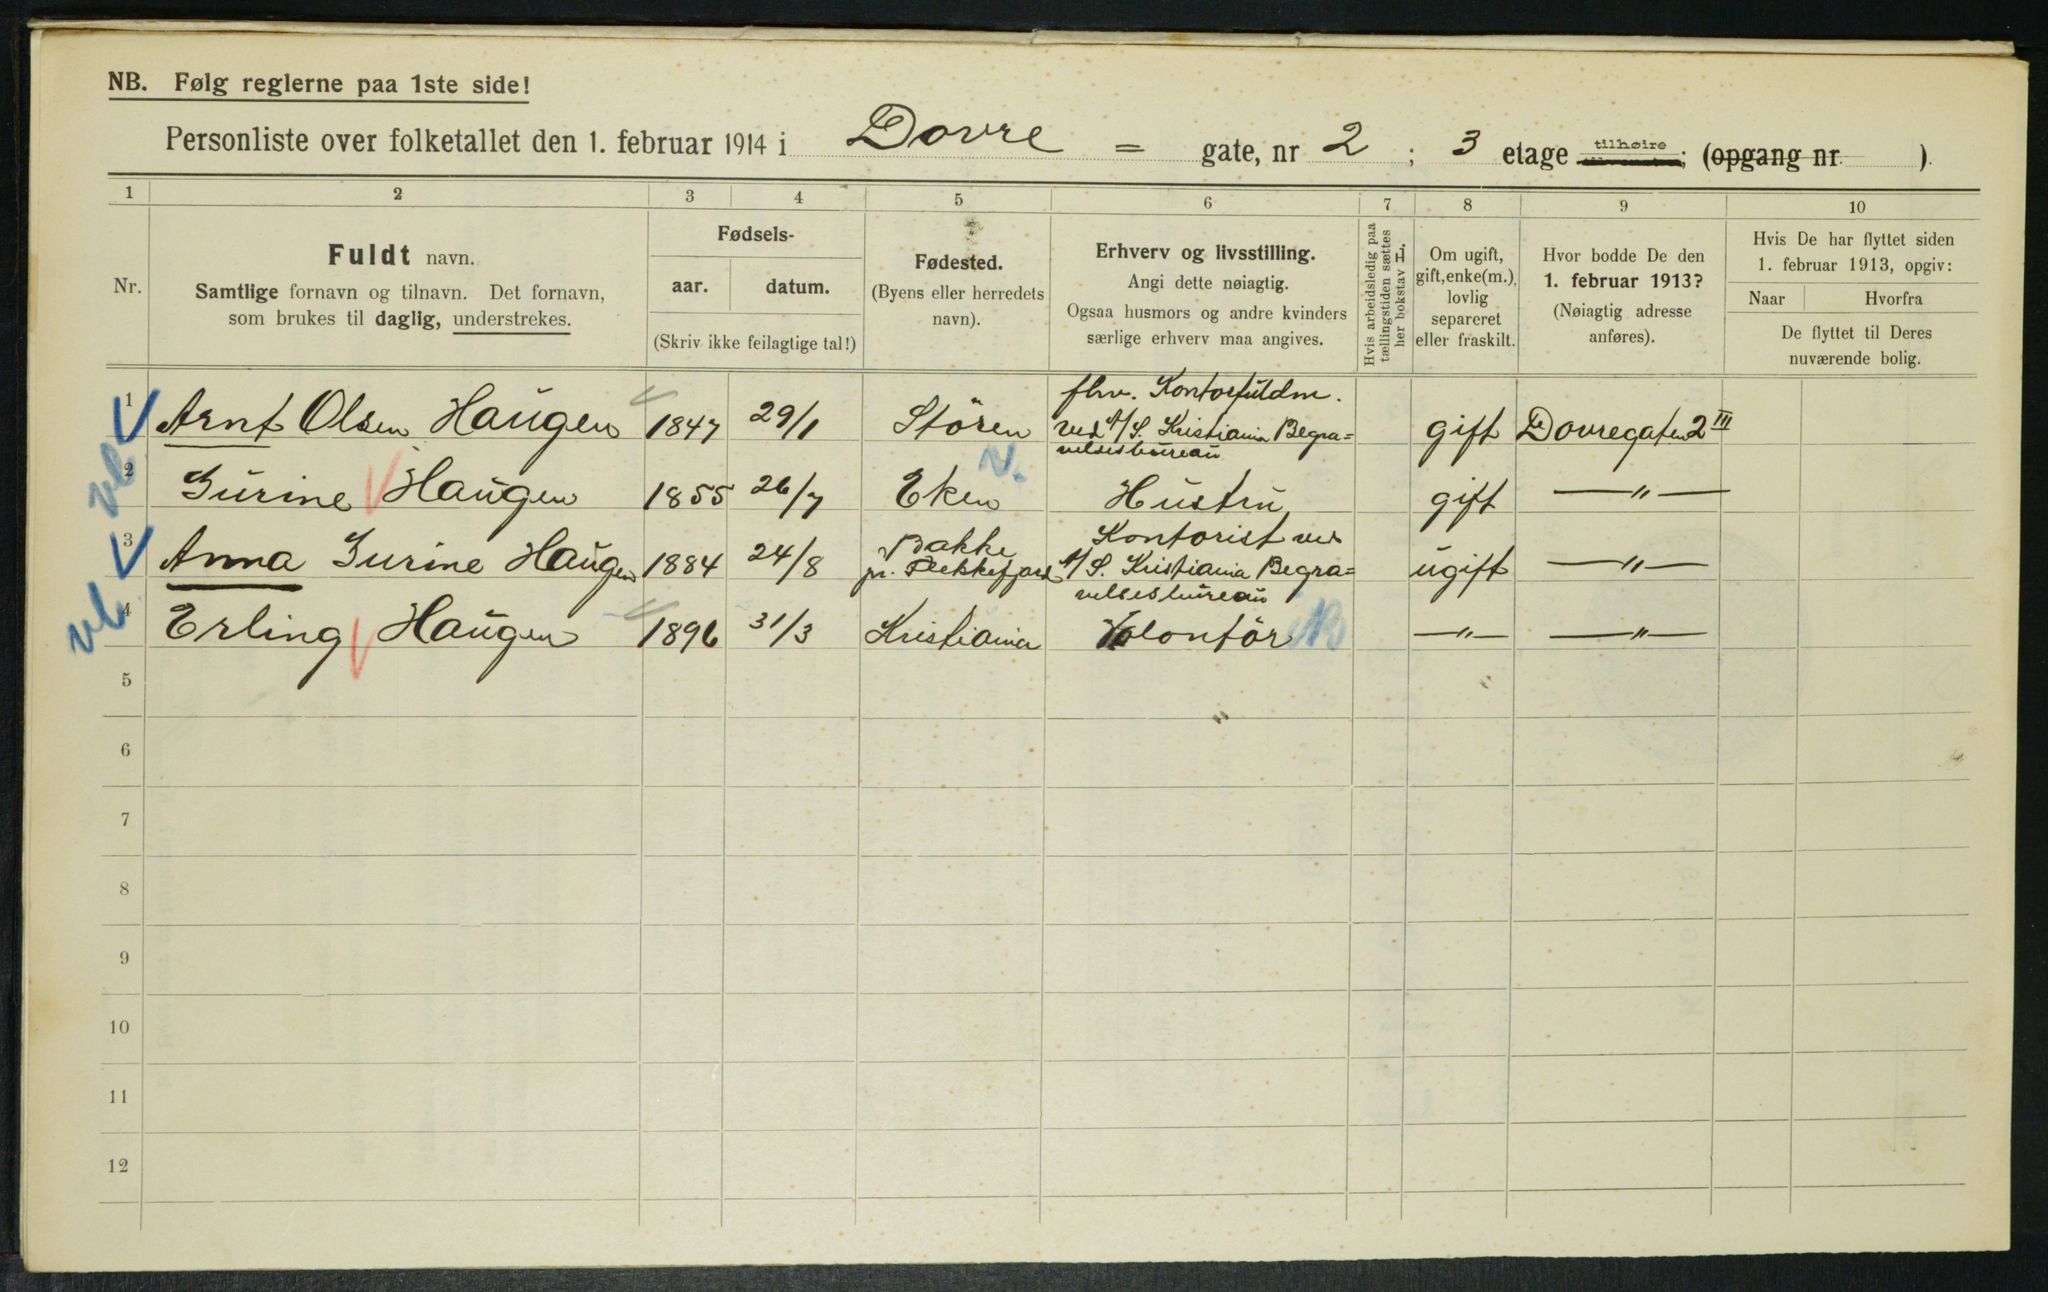 NB. Følg reglerne paa 1ste side!
Personliste over folketallet den 1. februar 1914 i Dovre = gate, nr 2 ; 3 etage tilhøire ; (opgang nr. ).
1 2 3 4 5 6 7 8 9 10
Nr.
Fuldt navn.
Samtlige fornavn og tilnavn. Det fornavn,
som brukes til daglig, understrekes.
Fødsels-
aar. datum.
(Skriv ikke feilagtige tal!)
Fødested.
(Byens eller herredets
navn).
Erhverv og livsstilling.
Angi dette nøiagtig.
Ogsaa husmors og andre kvinders
særlige erhverv maa angives.
Hvis arbeidsledig paa
tællingstiden sættes
her bokstav L.
Om ugift,
gift, enke(m.),
lovlig
separeret
eller fraskilt.
Hvor bodde De den
1. februar 1913?
(Nøiagtig adresse
anføres).
Hvis De har flyttet siden
1. februar 1913, opgiv:
Naar Hvorfra
De flyttet til Deres
nuværende bolig.
1 Arnt Olsen Haugen 1847 29/1 Stören fhv. Kontorfuldm.
ved A/S. Kristiania Begra=
velsesbureau gift Dovregaten 2 III
2 Gurine Haugen 1855 26/7 Eken Hustru gift — " —
3 Anna Gurine Haugen 1884 24/8 Bakke
pr. Flekkefjord Kontorist ved
A/S. Kristiania Begra=
velsesbureau ugift — " —
4 Erling Haugen 1896 31/3 Kristiania Volontör — " — — " —
5
6
7
8
9
10
11
12